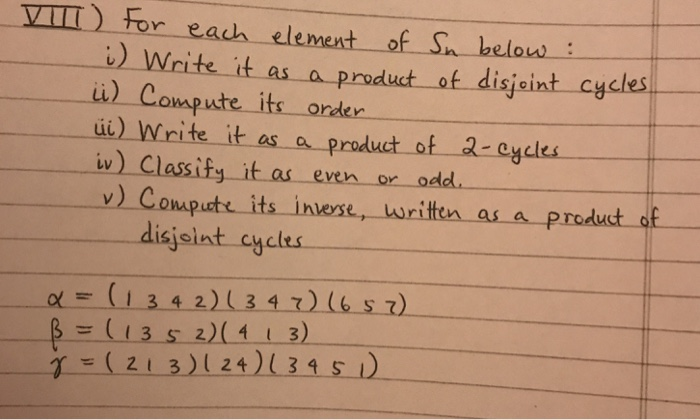 VIII) For each element of Sn below :
i) Write it as a product of disjoint cycles
ii) Compute its order
iii) Write it as a product of 2-cycles
iv) Classify it as even or odd.
v) Compute its inverse, written as a product of
disjoint cycles
α = (1 3 4 2)(3 4 7)(6 5 7)
β = (1 3 5 2)(4 1 3)
γ = (2 1 3)(2 4)(3 4 5 1)